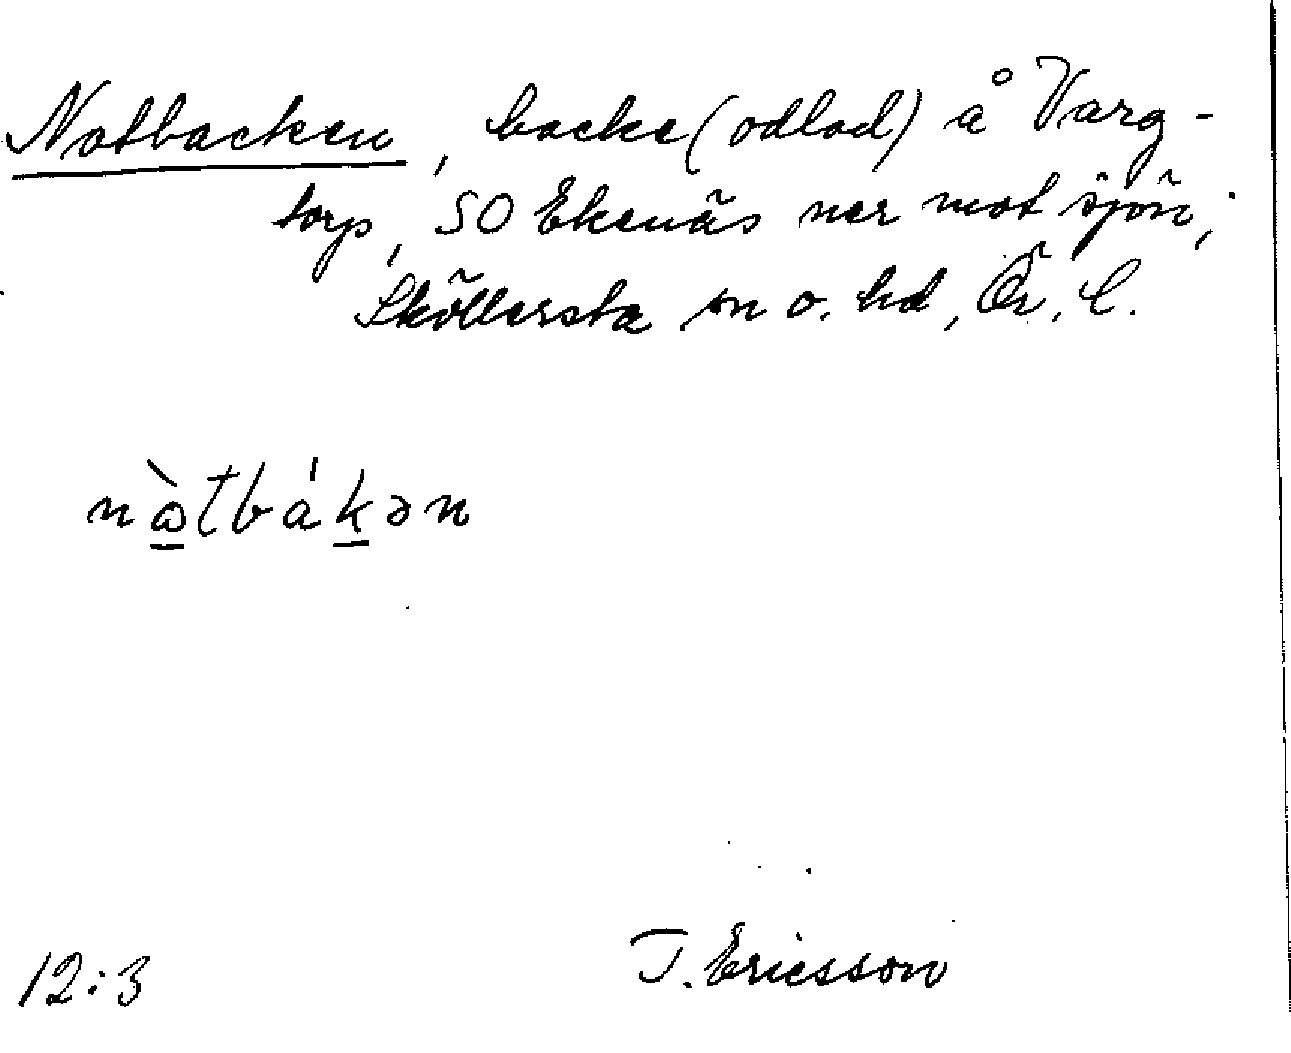 Notbacken, backe (odlad) å Varg-
torp, SO Ekenäs ner mot sjön,
Sköllersta sn o. hd, Ör. l.
nὼtbákən
12:3
T. Ericsson